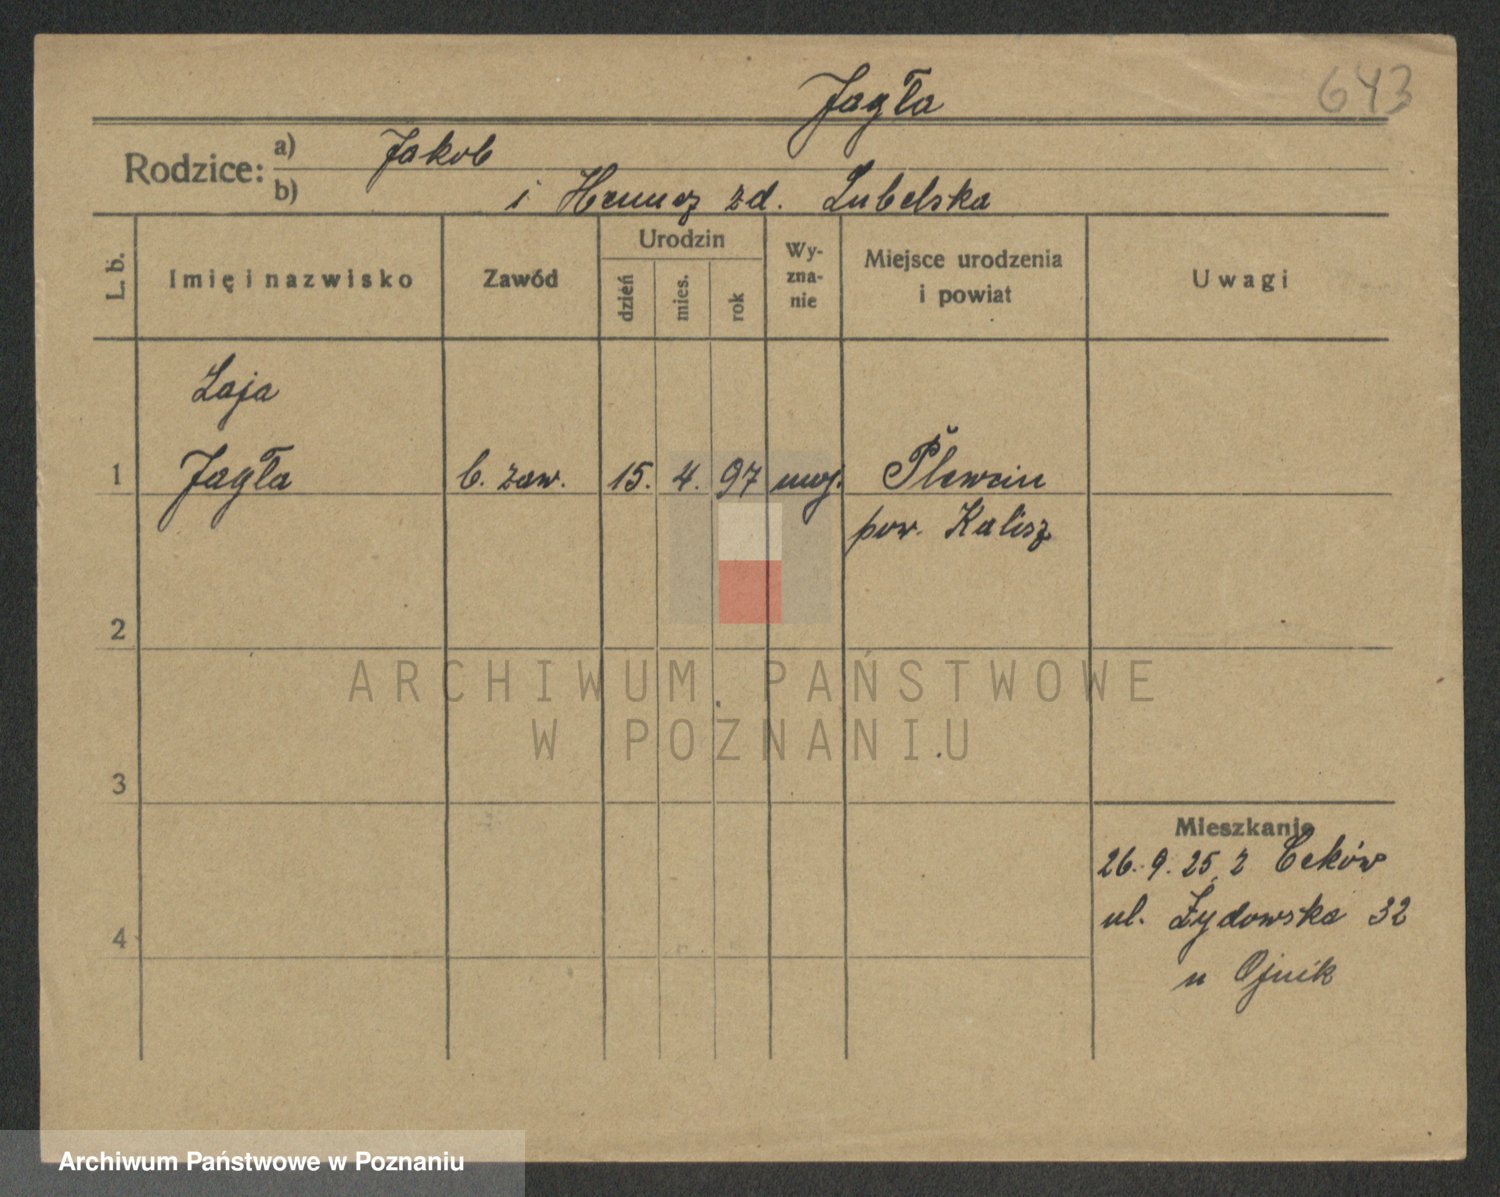 643
Jagła
Rodzice: a) Jakob
b) i zd. Lubelska
L. b.
Imię i nazwisko
Zawód
Urodzin
dzień
mies.
rok
Wy-
zna-
nie
Miejsce urodzenia
i powiat
Uwagi
Laja
1 Jagła b. zaw. 15. 4. 97
pow. Kalisz
2
ARCHIWUM PAŃSTWOWE
W POZNANIU
3
Mieszkanie
26. 9. 25 z Ceków
ul. Żydowska 32
4
u
Archiwum Państwowe w Poznaniu